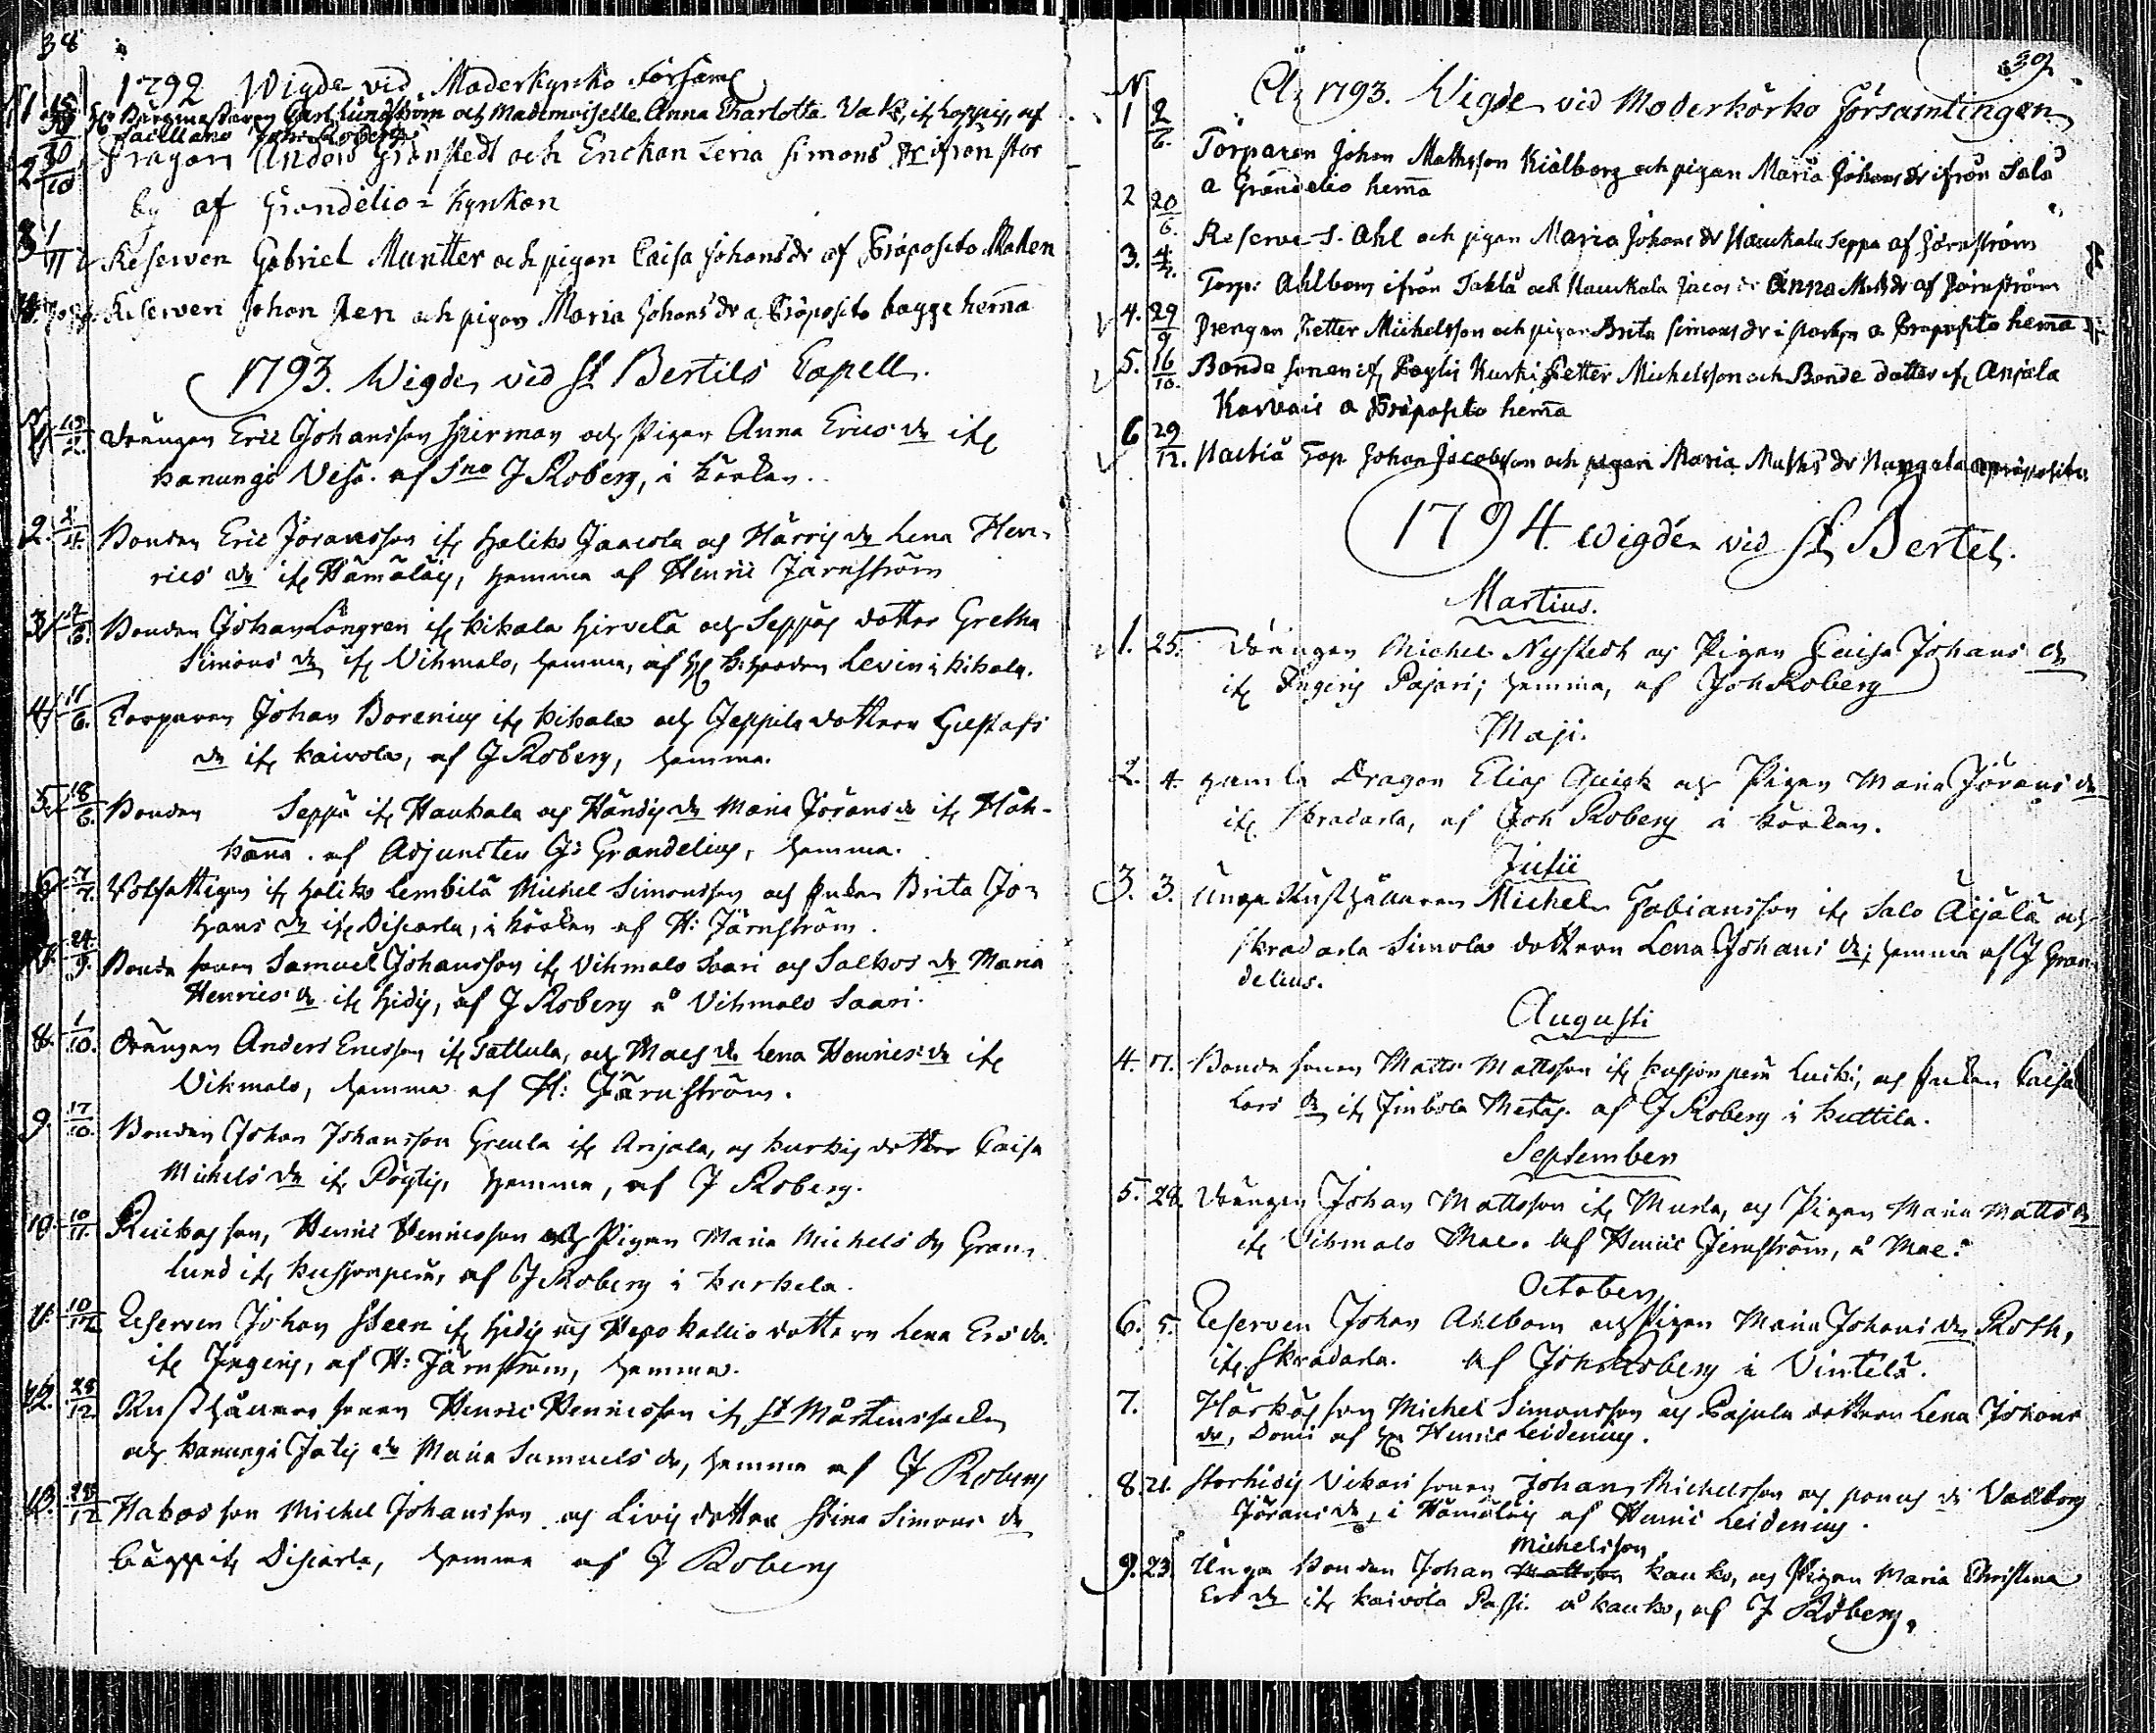 38
1792 Wigde vid Moderkyrko Församl
N 1 Hr Bergmästaren Carl Lundström och Mademoiselle Anna Charlotta af
2 30/10 Dragon Anders Grönstedt och Enckan Lena Simons dr ifrån stor
by af Grandelio i kyrkan
3 1/11 Reserven Gabriel Muntter och pigan Caisa Johans dr af Præposito
4. Reserven Johan och pigan Maria Johans dr a Præposito bägge hema
1793. Wigde vid St Bertils Capell.
Drängen Eric Johansson och Pigan Anna Erics dr ifr
hanungi af J Roberg, i körkan.
2. Bonden Eric Jöransson ifr haliko Jaacola och Härris dr Lena Hen-
rics dr ifr Hämäläis, hemma af Henric Järnström
3. Bonden Johan Löngren ifr kikala hirvelä och Seppäs dotter Gretha
Simons dr ifr Vihmalo, hemma, af Hr Levin i kikala.
4. 11/6. Torparen Johan Borenius ifr kikala och Jeppila dottren Gustafs
dr ifr kaivola, af J Roberg, hemma.
5. 18/6. Bonden Seppä ifr Haukala och Händis dr Maria Jörans dr ifr Höh-
käna. af Adjuncten J: Grandelius, hemma.
6 7/7. ifr haliko Lembilä Michel Simonsson och Enkan Brita Jo-
hans dr ifr Discarla, i körkan af H: Järnström.
7. 24/9. Bonde sonen Samuel Johansson ifr Vihmalo Saari och Salkos dr Maria
Henrics dr ifr hidis, af J Roberg å Vihmalo Saari.
8. 1/10. Drängen Anders Ericsson ifr Tattula, och Maes dr Lena Henrics dr ifr
Vihmalo, hemma af H: Järnström.
9. 17/10. Bonden Johan Johansson Greula ifr Anjala, och kurkis dotter Caisa
Michels dr ifr Pöytis, hemma, af J Roberg.
10. 10/11. Ruikas son, Henric Henricsson och Pigan Maria Michels dr Gran-
lund ifr af J Roberg i kurkela.
11. 10/12 Reserven Johan Steen ifr hidis och Hepokallio dottern Lena Ers dr
ifr Ingeris, af H: Järnström, hemma.
12. 28/12 Rusthållare sonen Henric Henricsson ifr St Mårtens sockn
och hanungi Jatis dr Maria Samuels dr, hemma af J Roberg
13. 28/12 Habas son Michel Johansson och Livis dotter Stina Simons dr
bägge ifr Discarla, hemma af J Roberg
39
N A: 1793. Wigde vid Moderkörko Församlingen
1 2/6. Torparen Johan Mathsson Kiälborg och pigan Maria Johans dr ifrån Salo
a Grandelio hema
2 20/6. Reserve S. Ahl och pigan Maria Johans dr Haukala Seppä af Jörnström
3. Torp: Ahlbom ifrån Takla och Haukala Jacos dr Anna Mats dr af Jörnström
4. 29/9 Drengen Petter Michelsson och pigan Brita Simons dr i a Præposito hema
5. 16/10. Bonde sonen ifr Pöytis Kurki Petter Michelsson och Bonde dotter ifr Anjala
Karvais a Præposito hema
6 29/12. Nactiä Torp Johan Jacobsson och pigan Maria Maths dr Naugala a præposito
1794 Wigde vid St Bertel.
Martius.
1. 25. Drängen Michel Nystedt och Pigan Caisa Johans dr
ifr Ingeris Pajari; hemma, af Joh Roberg
Maji.
2. 4. gamla Dragon Elias Quick och Pigan Maria Jörans dr
ifr Skradarla, af Joh Roberg i körkan.
Julii
3. 3. Unga Rusthållaren Michel Fabiansson ifr Salo Äijälä och
Skradarla Simola dottren Lena Johans dr; hemma af J Gran-
delius.
Augusti
4. 17. Bonde sonen Matts Mattsson ifr Luiki, och Enkan Caisa
Lars dr ifr Jmbola Mestas. af J Roberg i huttila.
September
5. 28. Drängen Johan Mattsson ifr Murla, och Pigan Maria Matts dr
ifr Vihmalo Mae. Af Henric Jernström, å Mae.
October
6. 5. Reserven Johan Ahlbom och Pigan Maria Johans dr Roth,
ifr Skradarla. Af Joh Roberg i Vintelä.
7. Härkäs son Michel Simonsson och Pajula dottren Lena Johans
dr, Domi af Hr Henric Leidenius.
8 21. Storhidis Vikari sonen Johan Michelsson och dr Vallborg
Jörans dr, i Hämäläis af Henric Leidenius.
Michelsson
9. 23. Unga Bonden Johan Mattsson kauko, och Pigan Maria Christina
Ers dr ifr kaivola Passi. å kauko, af J Roberg.